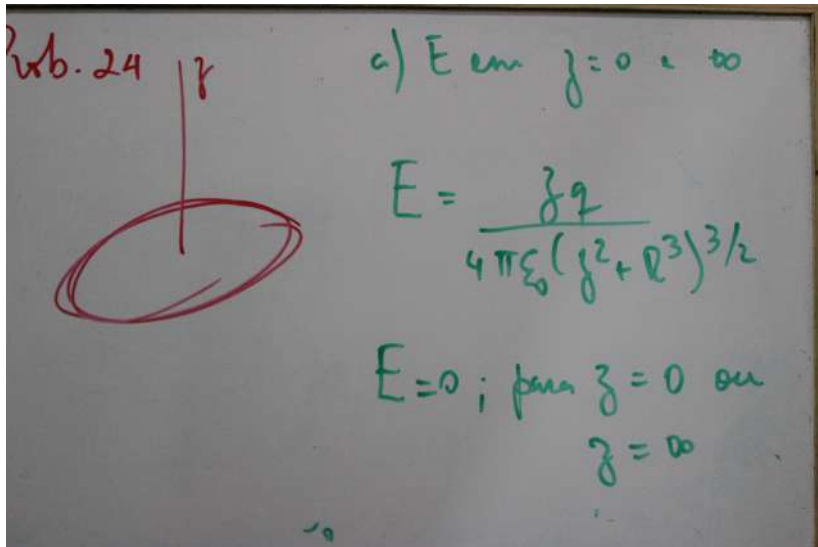 Prob. 24
z
a) E em z = 0 e ∞
E = zq / 4πε₀(z² + R³)^3/2
E = 0 ; para z = 0 ou
z = ∞